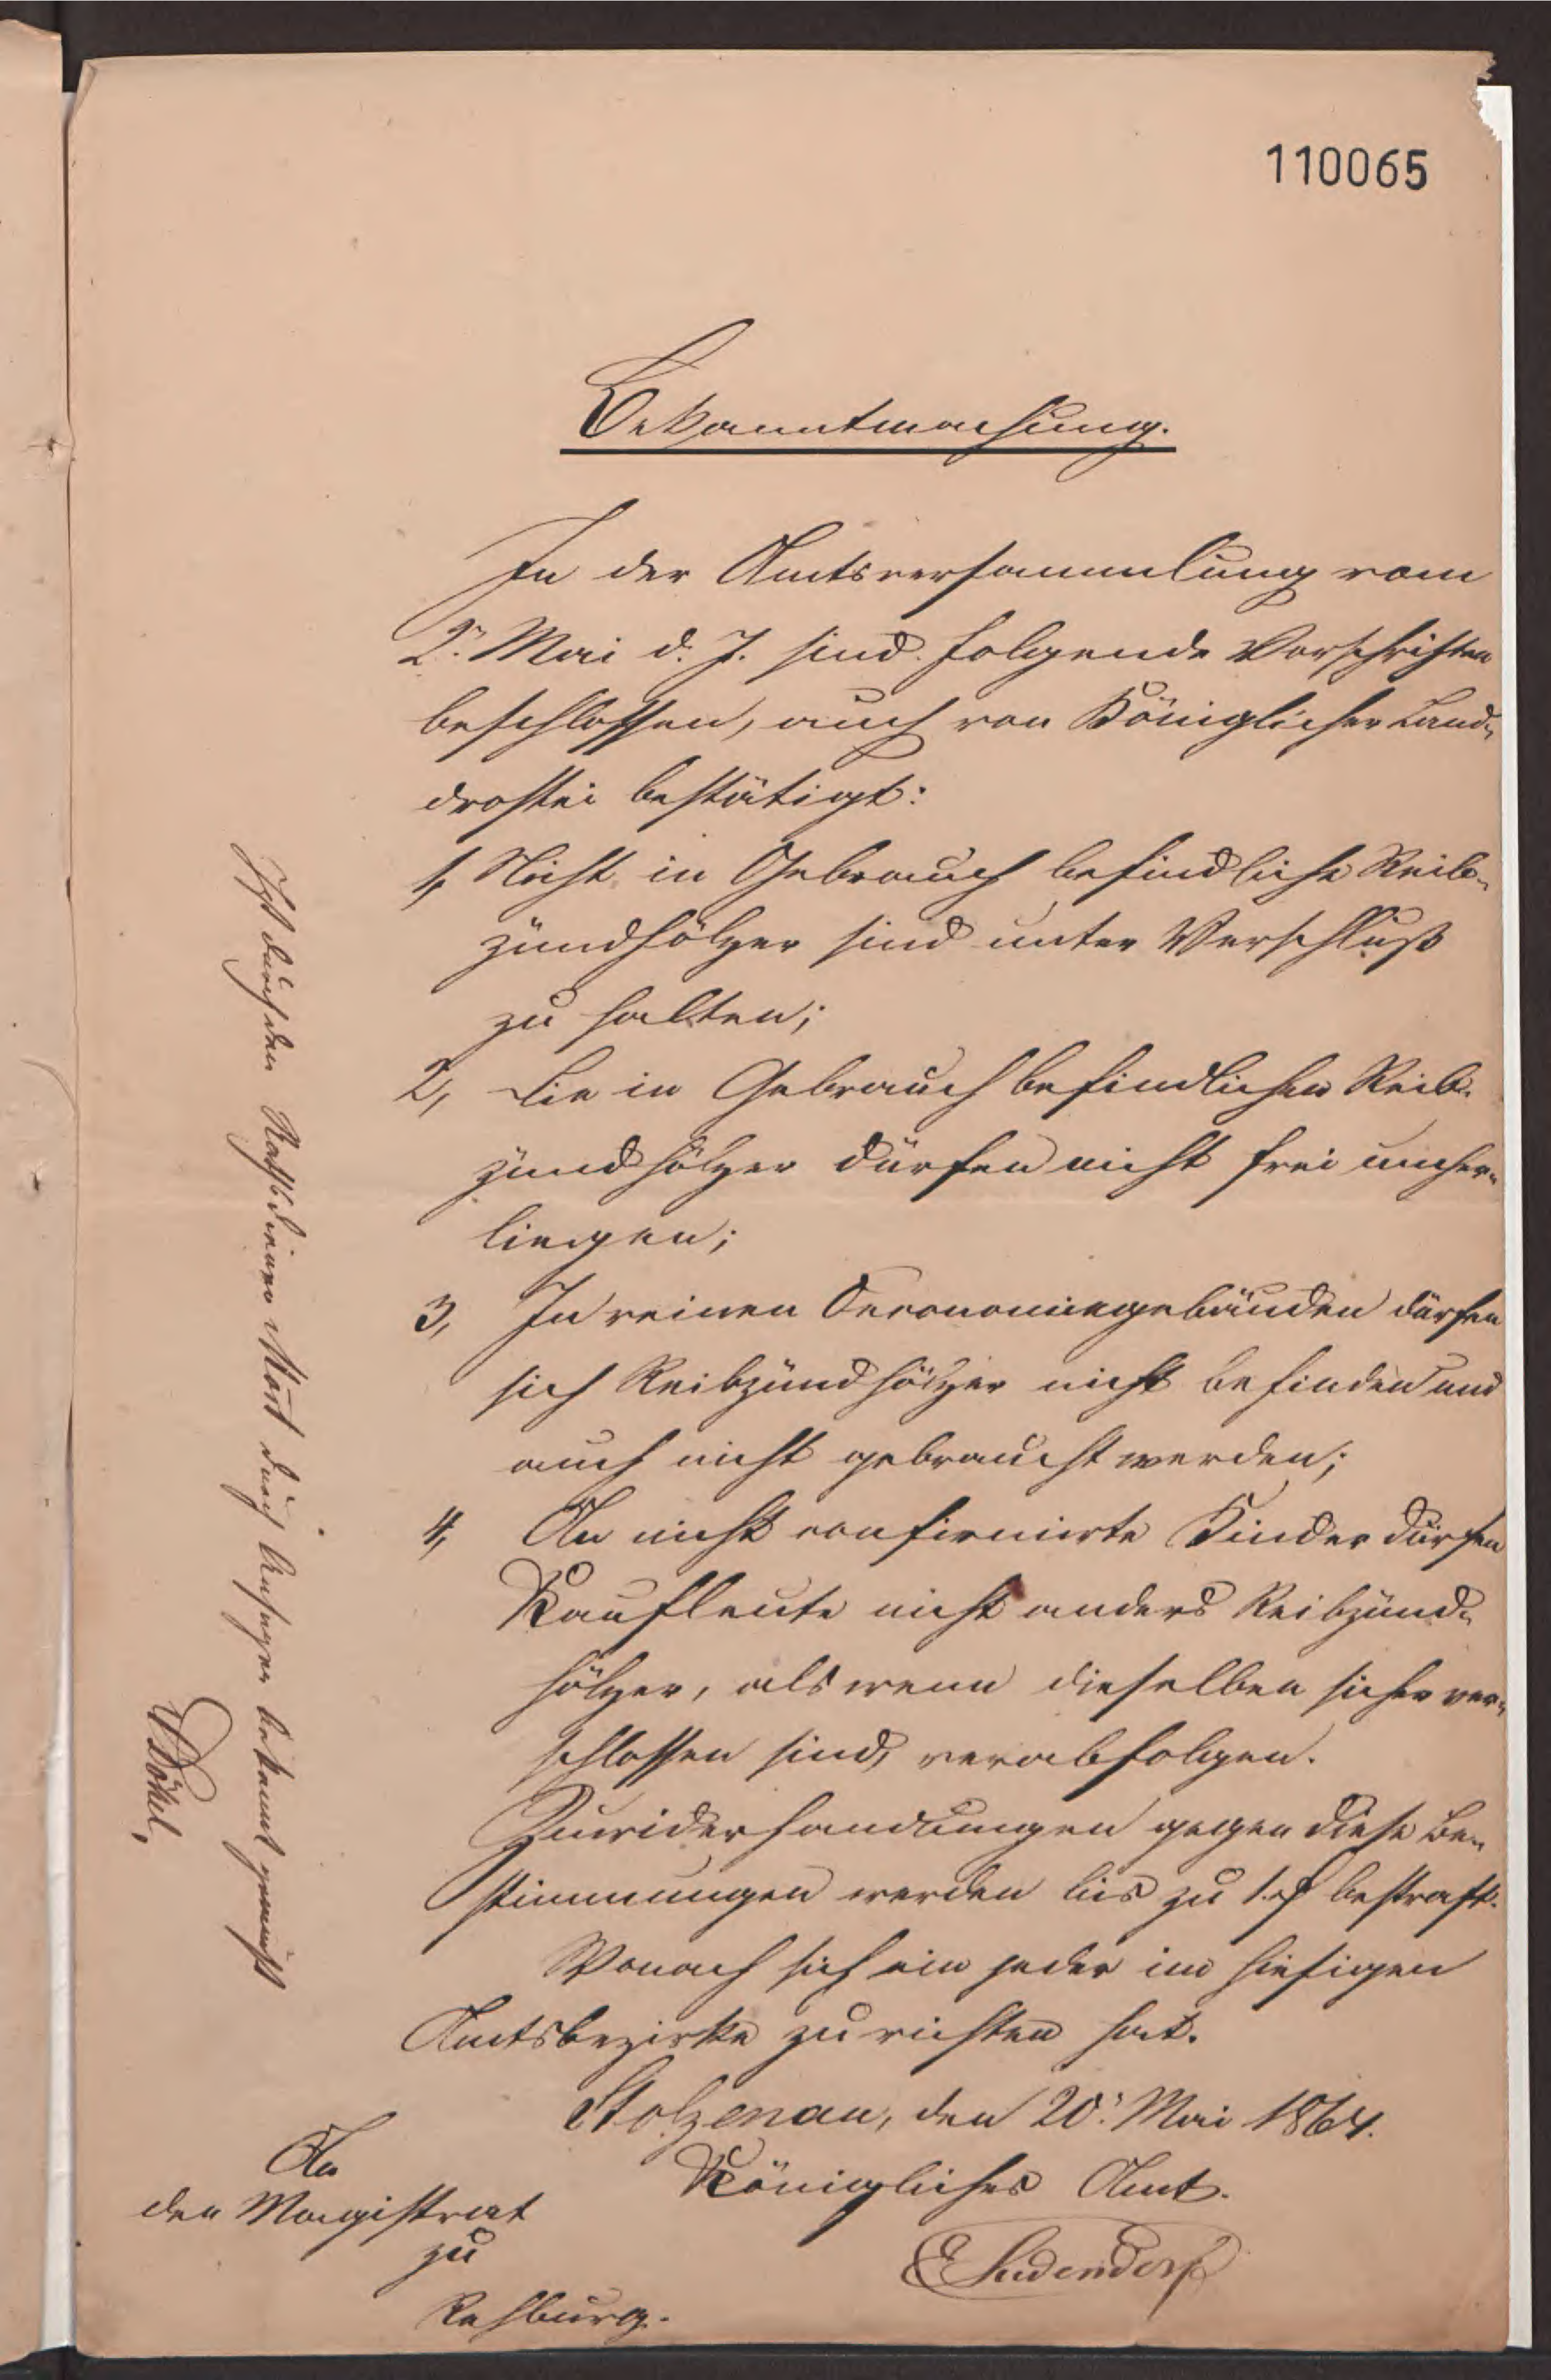 110065
Bekanntmachung.
In der Amtsversammlung vom
2. Mai d. J. sind folgende Vorschriften
beschlossen, auch von Königlicher Land-
drostei bestätigt:
1, Nicht in Gebrauch befindliche Reib-
zündhölzer sind unter Verschluß
zu halten;
2, Die in Gebrauch befindlichen Reib-
zündhölzer dürfen nicht frei umher-
liegen;
3, In reinen Oeconomiegebäuden dürfen
sich Reibzündhölzer nicht befinden und
auch nicht gebraucht werden;
4, An nicht confirmirte Kinder dürfen
Kaufleute nicht anders Reibzünd-
hölzer, als wenn dieselben sicher ver-
schlossen sind, verabfolgen.
Zuwiderhandlungen gegen diese Be-
stimmungen werden bis zu 1 rf bestraft.
Wonach sich ein jeder im hiesigen
Amtsbezirke zu richten hat.
Stolzenau, den 20. Mai 1864.
Königliches Amt.
An
den Magistrat
zu
Rehburg.
Ist durch den Rathsdiener durch Ansagen bekannt gemacht